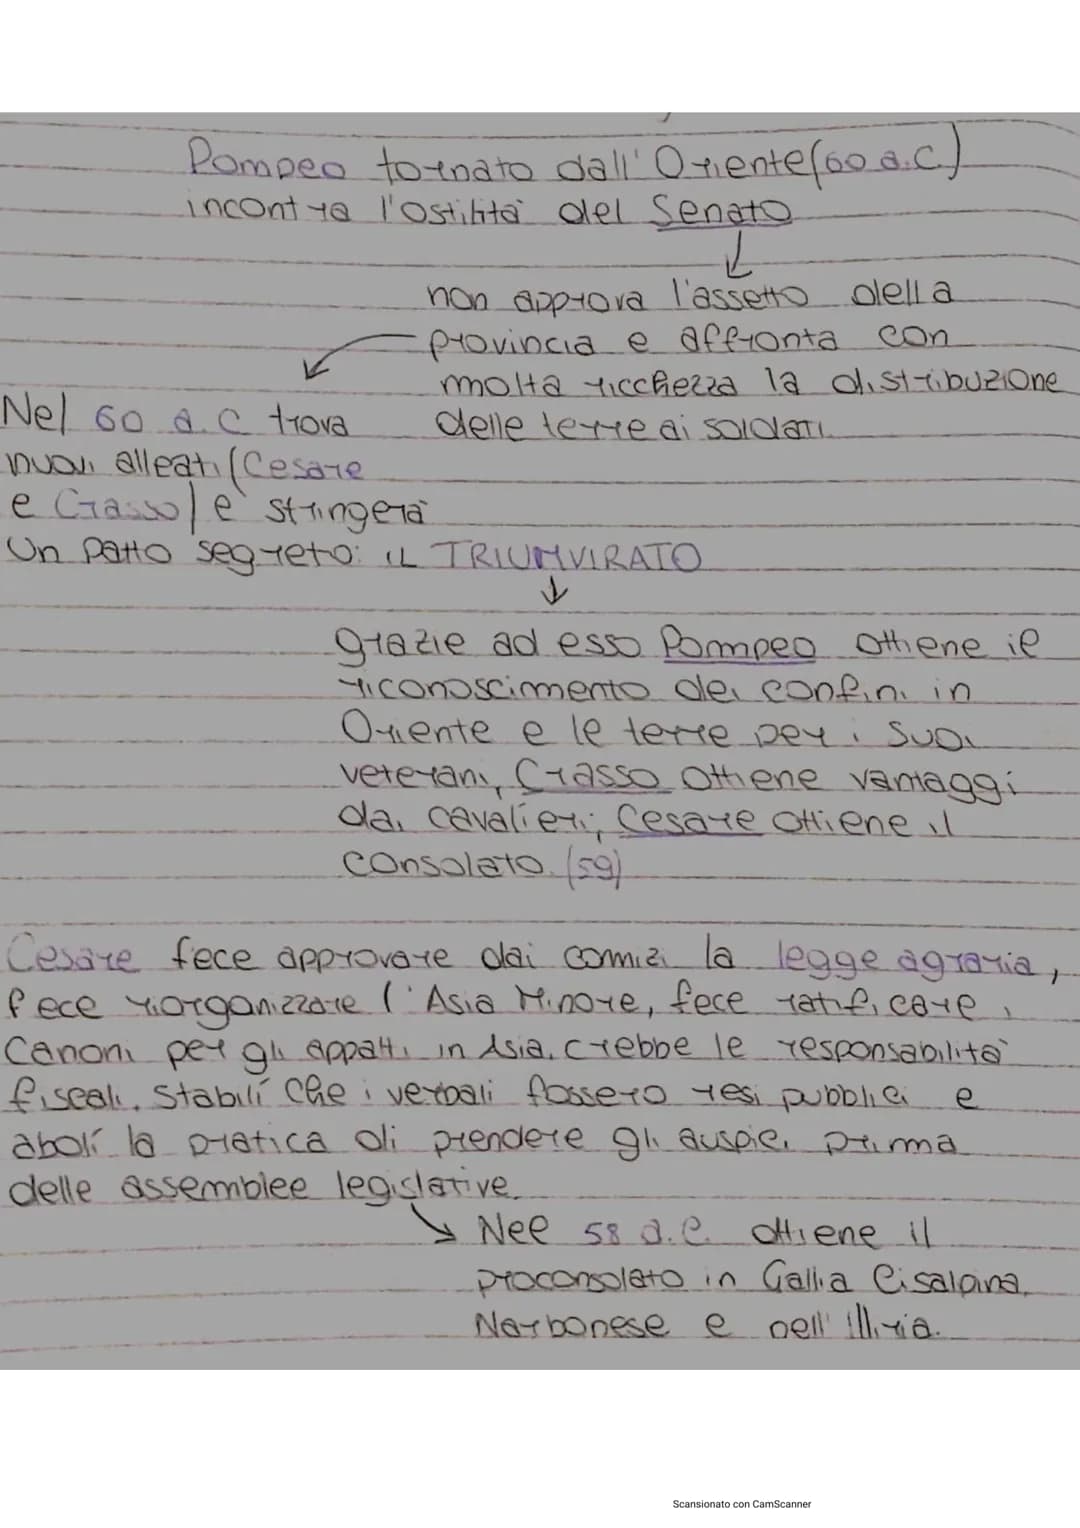 Pompeo tornato dall'Oriente (60 a.C.)
incontra l'ostilità del Senato
non approva l'assetto della
provincia e affronta con
molta ricchezza la distribuzione
delle terre ai soldati.
Nel 60 a.C trova
nuovi alleati (Cesare
e Crasso) e stringerà
Un patto segreto: IL TRIUMVIRATO
grazie ad esso Pompeo ottiene il
riconoscimento dei confini in
Oriente e le terre per i suoi
veterani, Crasso ottiene vantaggi
dai cavalieri; Cesare ottiene il
consolato. (59)
Cesare fece approvare dai comizi la legge agraria,
fece riorganizzare l'Asia Minore, fece ratificare i
Canoni per gli appalti in Asia, crebbe le responsabilità
fiscali. Stabilí che i verbali fossero resi pubblici e
abolí la pratica di prendere gli auspici prima
delle assemblee legislative.
Nel 58 a.C. ottiene il
proconsolato in Gallia Cisalpina,
Narbonese e nell'Illiria.
Scansionato con CamScanner